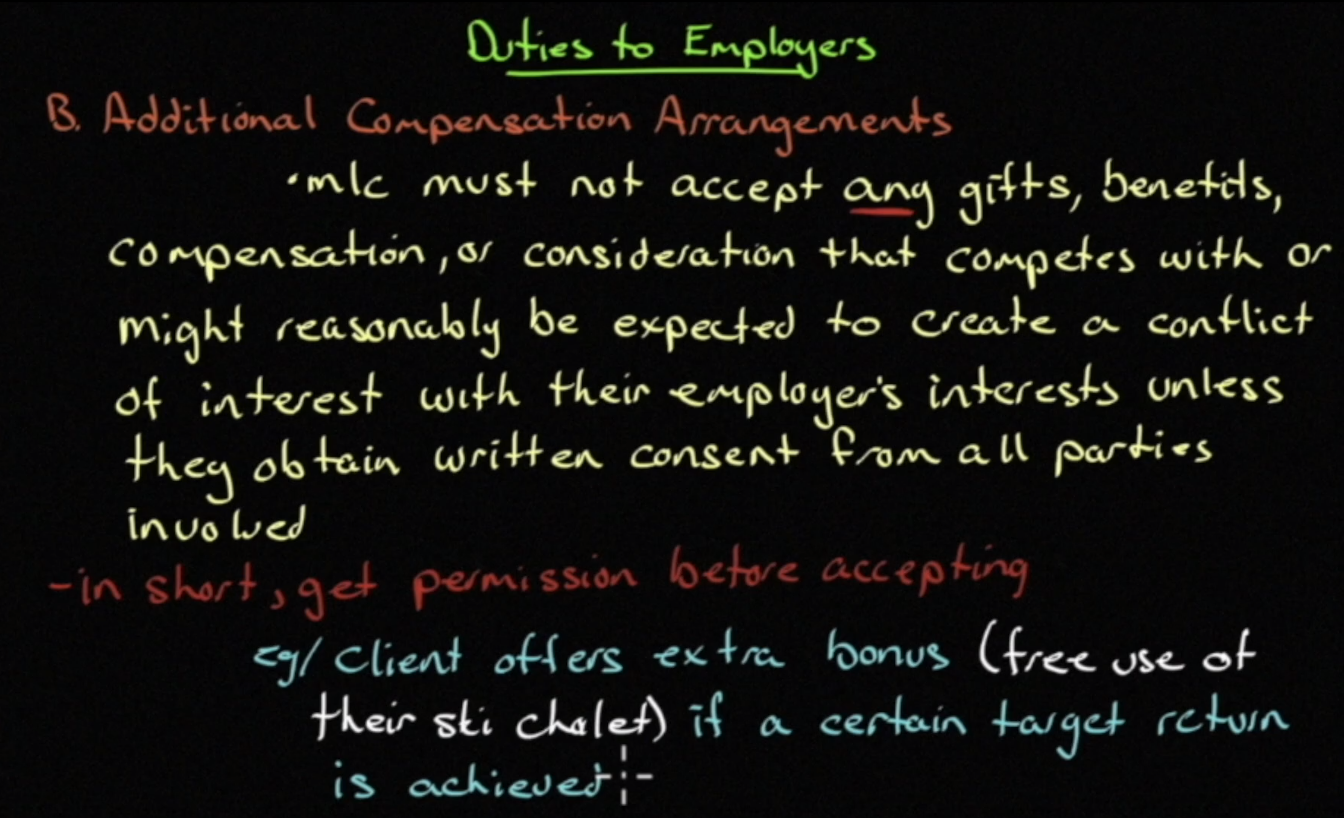 Duties to Employers
B. Additional Compensation Arrangements
·mlc must not accept any gifts, benefits,
compensation, or consideration that competes with or
might reasonably be expected to create a conflict
of interest with their employer's interests unless
they obtain written consent from all parties
involved
-in short, get permission before accepting
eg/ Client offers extra bonus (free use of
their ski chalet) if a certain target return
is achieved